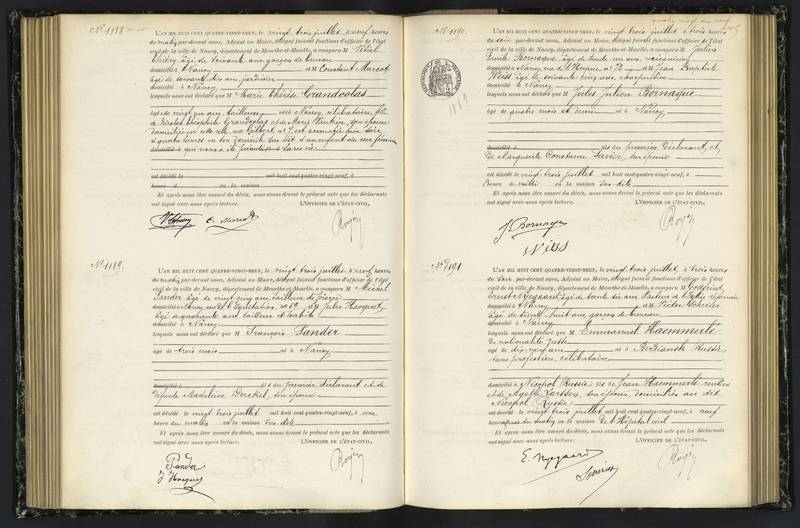 No 1188
L'AN MIL HUIT CENT QUATRE-VINGT-NEUF, le vingt trois juillet à neuf heures
du matin par-devant nous, Adjoint au Maire, délégué faisant fonctions d'officier de l'état
civil de la ville de Nancy, département de Meurthe-et-Moselle, a comparu M
Thiéry âgé de soixante ans, garçon de bureau
domicilié à Nancy et M Constant Marcot
âgé de soixante dix ans, jardinier
domicilié à Nancy
lesquels nous ont déclaré que M Marie Thérèse Grandcolas
âgé de vingt un ans, tailleuse née à Nancy, célibataire, fille
de Nicolas Grandcolas et de Marie son épouse
domiciliés en cette ville, rue est accouchée hier soir
à quatre heures en son domicile sus dit d'un enfant du sexe féminin
domicilié à qui nous a été présenté sans vie
est décédé le mil huit cent quatre-vingt-neuf, à
heure d en la maison
Et après nous être assuré du décès, nous avons dressé le présent acte que les déclarants
ont signé avec nous après lecture. L'OFFICIER DE L'ÉTAT-CIVIL,
No 1189
L'AN MIL HUIT CENT QUATRE-VINGT-NEUF, le vingt trois juillet à neuf heures
du matin par-devant nous, Adjoint au Maire, délégué faisant fonctions d'officier de l'état
civil de la ville de Nancy, département de Meurthe-et-Moselle, a comparu M Michel
Pander âgé de vingt cinq ans, tailleur de pierre
domicilié à Nancy, rue 59 et M Jules Hocquet
âgé de quarante ans tailleur d'habits
domicilié à Nancy
lesquels nous ont déclaré que M François Pander
âgé de trois mois né à Nancy
domicilié à fils du premier déclarant et de
défunte Madeleine son épouse
est décédé le vingt trois juillet mil huit cent quatre-vingt-neuf, à une
heure du matin en la maison sus-dite
Et après nous être assuré du décès, nous avons dressé le présent acte que les déclarants
ont signé avec nous après lecture. L'OFFICIER DE L'ÉTAT-CIVIL,
Pander
J Hocquet
quatre vingt dix neuf
No 1190
L'AN MIL HUIT CENT QUATRE-VINGT-NEUF, le vingt trois juillet à trois heures
du soir par-devant nous, Adjoint au Maire, délégué faisant fonctions d'officier de l'état
civil de la ville de Nancy, département de Meurthe-et-Moselle, a comparu M Jules
Emile Bornaque, âgé de trente un ans, mécanicien
domicilié à Nancy, rue et M Jean Baptiste
Weiss âgé de soixante cinq ans, charpentier
domicilié à Nancy
lesquels nous ont déclaré que M Jules Julien Bornaque
âgé de quatre mois et demi né à Nancy
domicilié à fils du premier déclarant, et
de Marguerite Constance son épouse
est décédé le vingt trois juillet mil huit cent quatre-vingt-neuf, à
heure de midi en la maison sus-dite
Et après nous être assuré du décès, nous avons dressé le présent acte que les déclarants
ont signé avec nous après lecture. L'OFFICIER DE L'ÉTAT-CIVIL,
J. Bornaque
Weiss
No 1191
L'AN MIL HUIT CENT QUATRE-VINGT-NEUF, le vingt trois juillet, à trois heures
du soir par-devant nous, Adjoint au Maire, délégué faisant fonctions d'officier de l'état
civil de la ville de Nancy, département de Meurthe-et-Moselle, a comparu M Godfried
Ernst Nyegaard, âgé de trente six ans, Pasteur de l'Eglise réformée
domicilié à Nancy et M Victor
âgé de trente huit ans, garçon de bureau
domicilié à Nancy
lesquels nous ont déclaré que M Emmanuel Haemmerlé
de nationalité Russe
âgé de dix neuf ans né à Berdiansk Russie
sans profession, célibataire
domicilié à Nicopol (Russie) fils de Jean Haemmerlé rentier
et de Agathe Larsson, son épouse, domiciliés au dit
Nicopol (Russie)
est décédé le vingt trois juillet mil huit cent quatre-vingt-neuf, à neuf
heures du matin en la maison de l'Hôpital civil
Et après nous être assuré du décès, nous avons dressé le présent acte que les déclarants
ont signé avec nous après lecture. L'OFFICIER DE L'ÉTAT-CIVIL,
E. Nyegaard